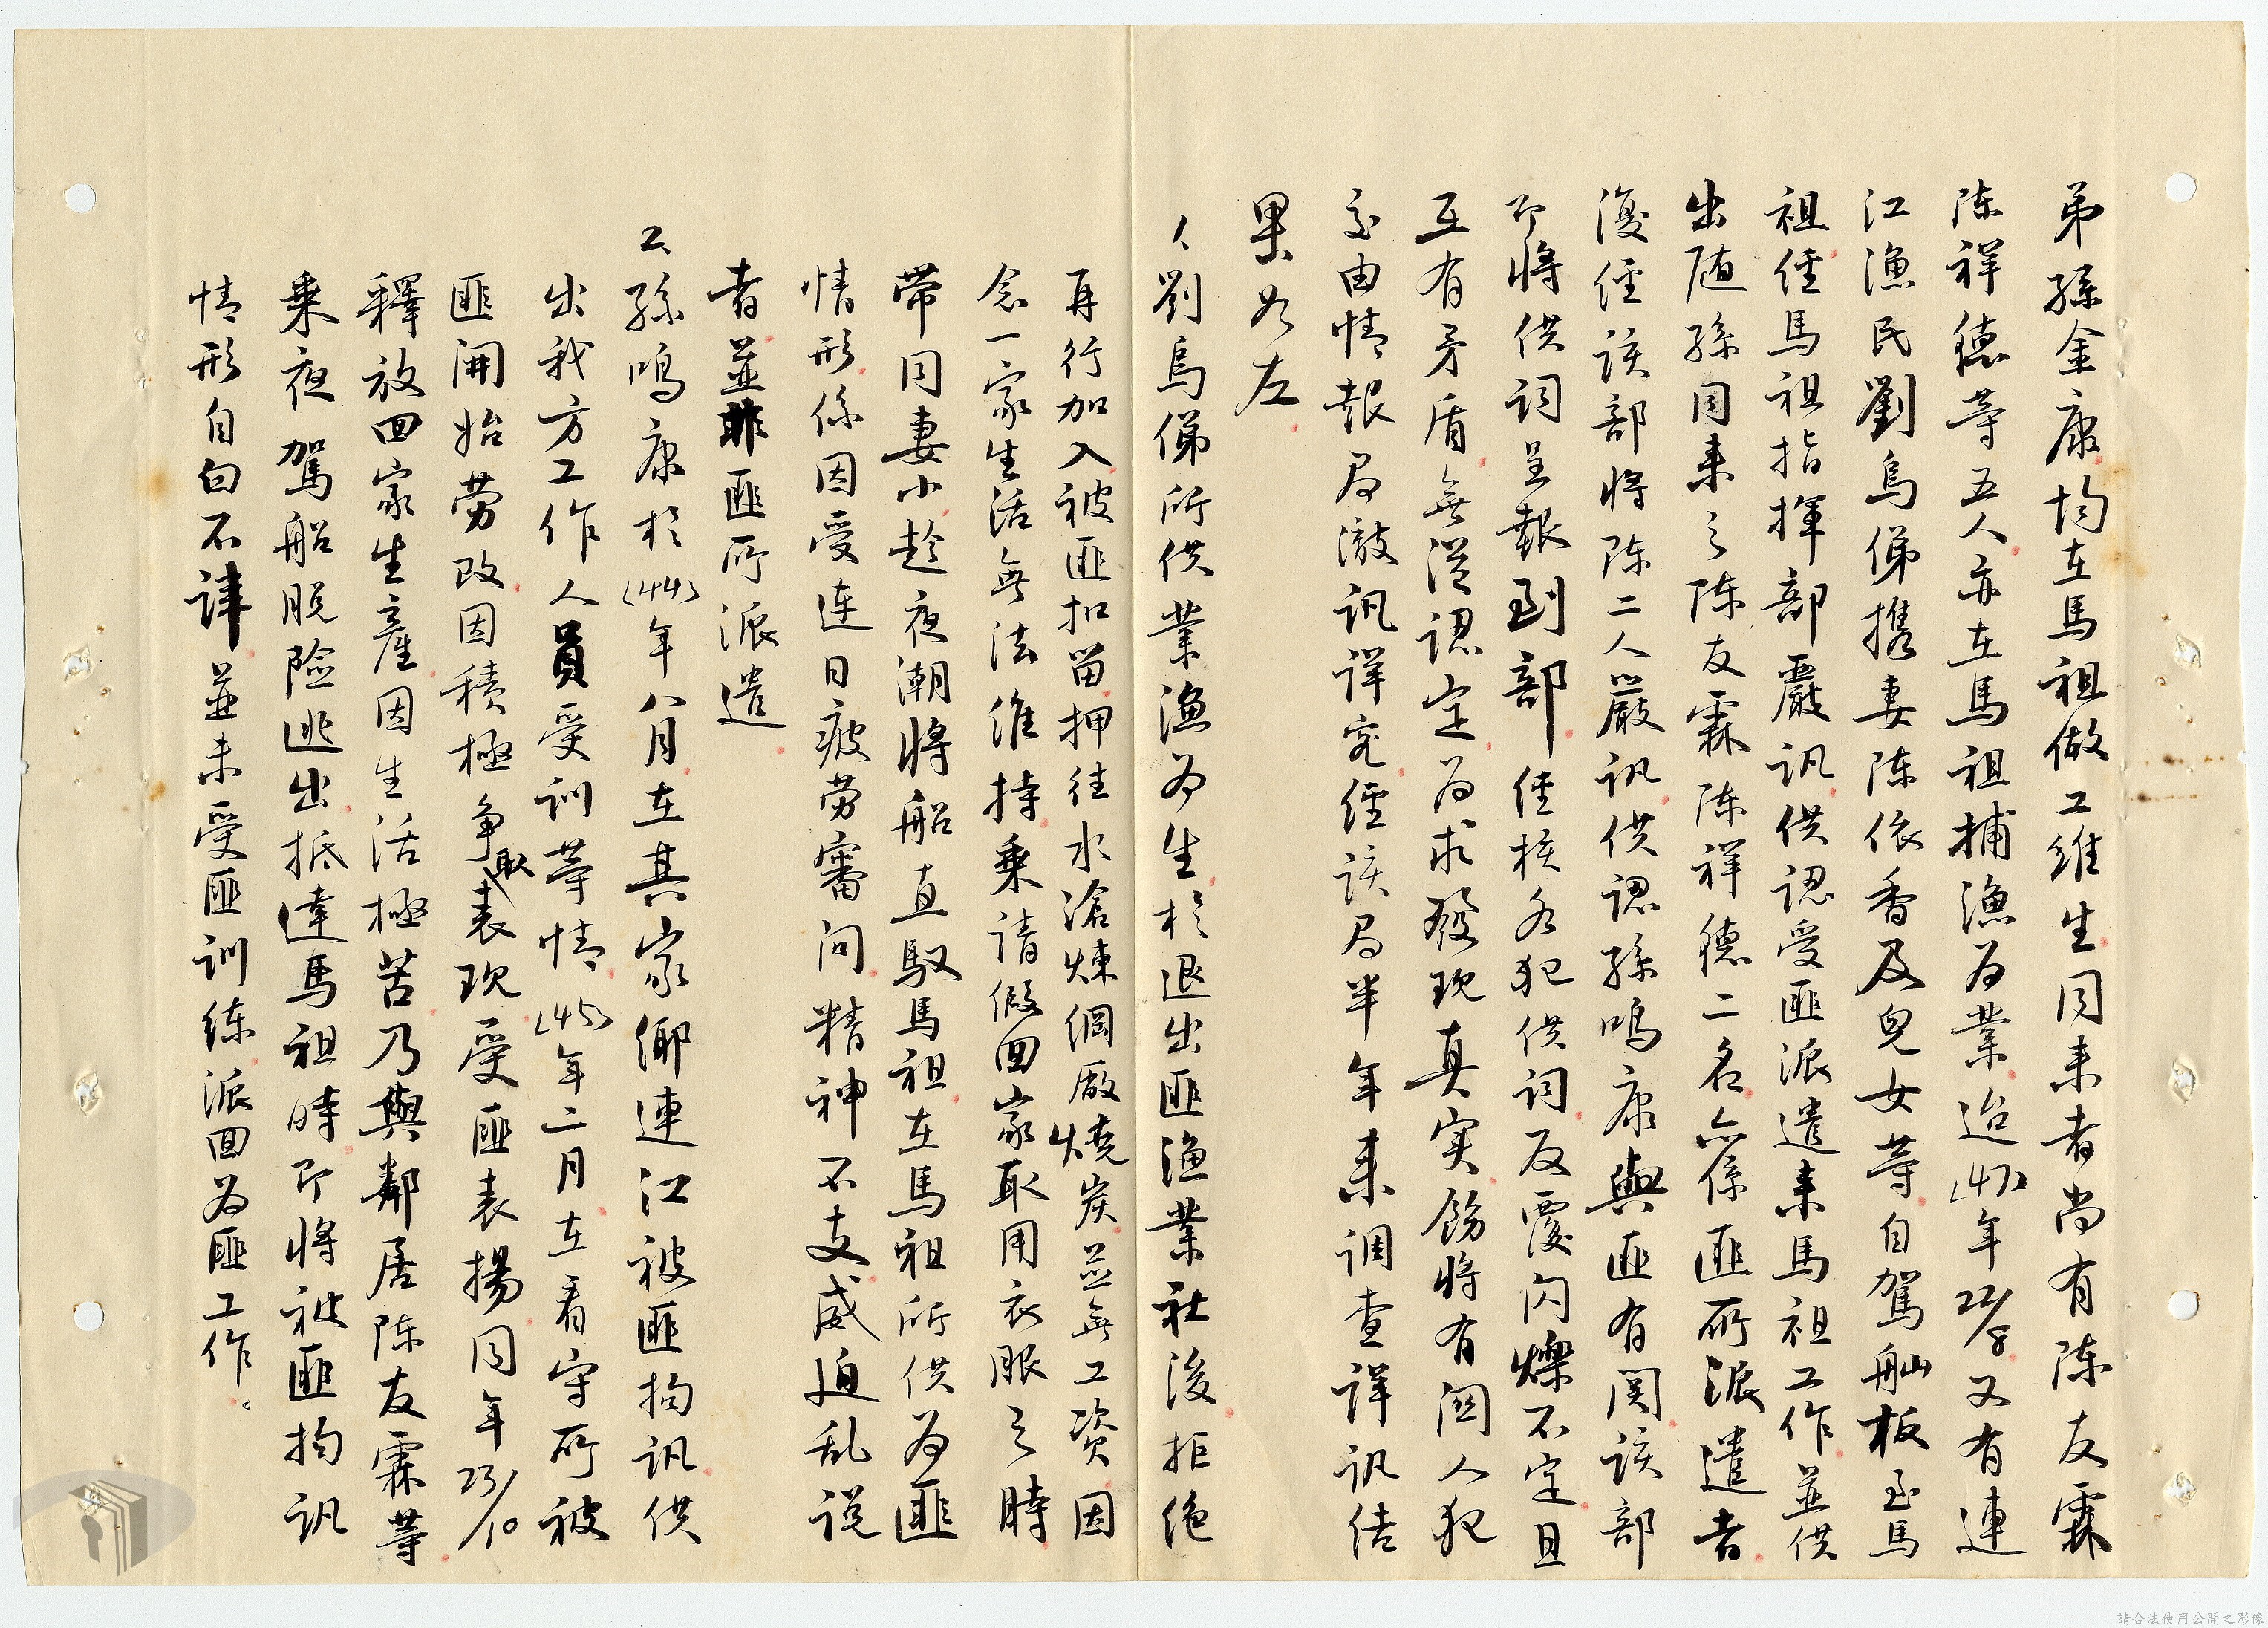 弟孫金康均在馬祖做工維生同來者尚有陳友霖
陳祥德等五人亦在馬祖捕漁為業迨(47)年22/8又有連
江漁民劉烏俤携妻陳依香及兒女等自駕舢板至馬
祖經馬祖指揮部嚴訊供認受匪派遣來馬祖工作並供
出隨孫同來之陳友霖陳祥德二名亦係匪所派遣者
復經該部將陳二人嚴訊供認孫鳴康與匪有関該部
即將供詞呈報到部經核各犯供詞反覆閃爍不定且
互有矛盾無從認定為求發現真实飭將有関人犯
交由情報局澈訊詳究經該局半年來調查詳訊結
果如左
1、劉烏俤所供業漁為生於退出匪漁業社後拒絕
再行加入被匪扣留押往水滄煉鋼廠燒炭並無工資因
念一家生活無法維持乘請假回家取用衣服之時
帶同妻小趁夜潮將船直馭馬祖在馬祖所供為匪
情形係因受連日疲勞審问精神不支威迫乱說
者並非匪所派遣
2、孫鳴康於(44)年八月在其家鄉連江被匪拘訊供
出我方工作人員受訓等情(45)年二月在看守所被
匪開始勞改因積極爭取表現受匪表揚同年23/10
釋放回家生產因生活極苦乃與鄰居陳友霖等
乘夜駕船脫險逃出抵達馬祖時即將被匪拘訊
情形自白不諱並未受匪訓练派回為匪工作。
請合法使用公開之影像